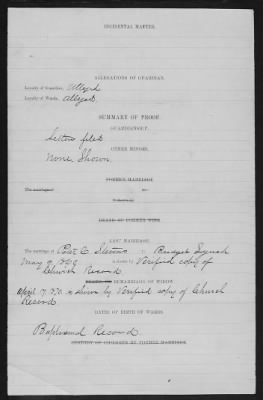 INCIDENTAL MATTER.
ALLEGATIONS OF GUARDIAN.
Loyalty of Guardian, Alleged
Loyalty of Wards, Alleged.
SUMMARY OF PROOF.
GUARDIANSHIP.
Letters filed
OTHER MINORS.
None Shown.
FORMER MARRIAGE
The marriage of to
DEATH OF FORMER WIFE.
LAST MARRIAGE.
The marriage of C. to Bridget
May is shown by Verified copy of
Church Record
DEATH OR REMARRIAGE OF WIDOW.
April is shown by Verified copy of Church
Record.
DATES OF BIRTH OF WARDS.
Baptismal Record
CUSTODY OF CHILDREN BY FORMER MARRIAGE.